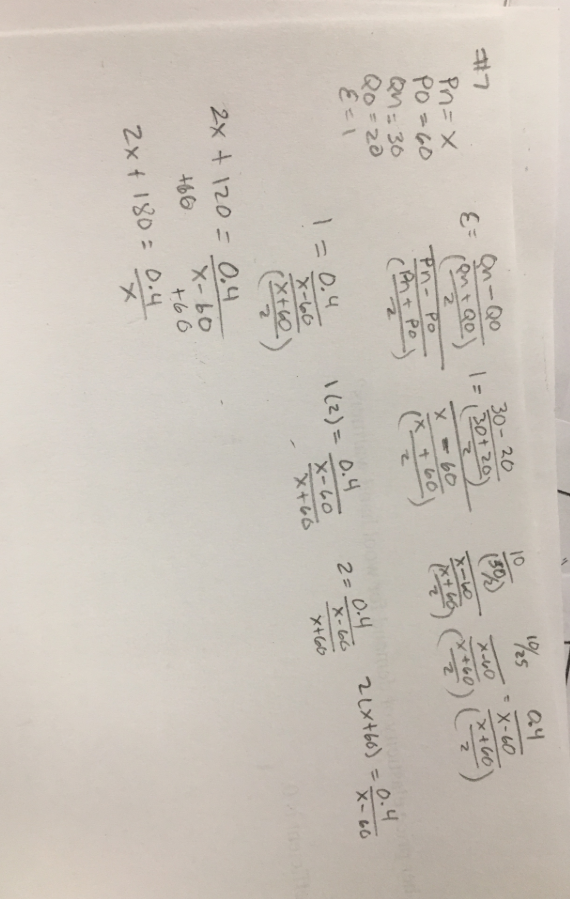 #7
Pn = x
Po = 60
Qn = 30
Qo = 20
ε = 1
ε = ((Qn - Qo)/((Qn + Qo)/2))/((Pn - Po)/((Pn + Po)/2))
1 = ((30 - 20)/((30 + 20)/2))/((x - 60)/((x + 60)/2))
(10/(50/2))/((x - 60)/((x + 60)/2))
(10/25)/((x - 60)/((x + 60)/2)) = 0.4/((x - 60)/((x + 60)/2))
1 = 0.4/((x - 60)/((x + 60)/2))
1(2) = 0.4/((x - 60)/(x + 60))
2 = 0.4/((x - 60)/(x + 60))
2(x + 60) = 0.4/(x - 60)
2x + 120 = 0.4/(x - 60)
+60 +60
2x + 180 = 0.4/x